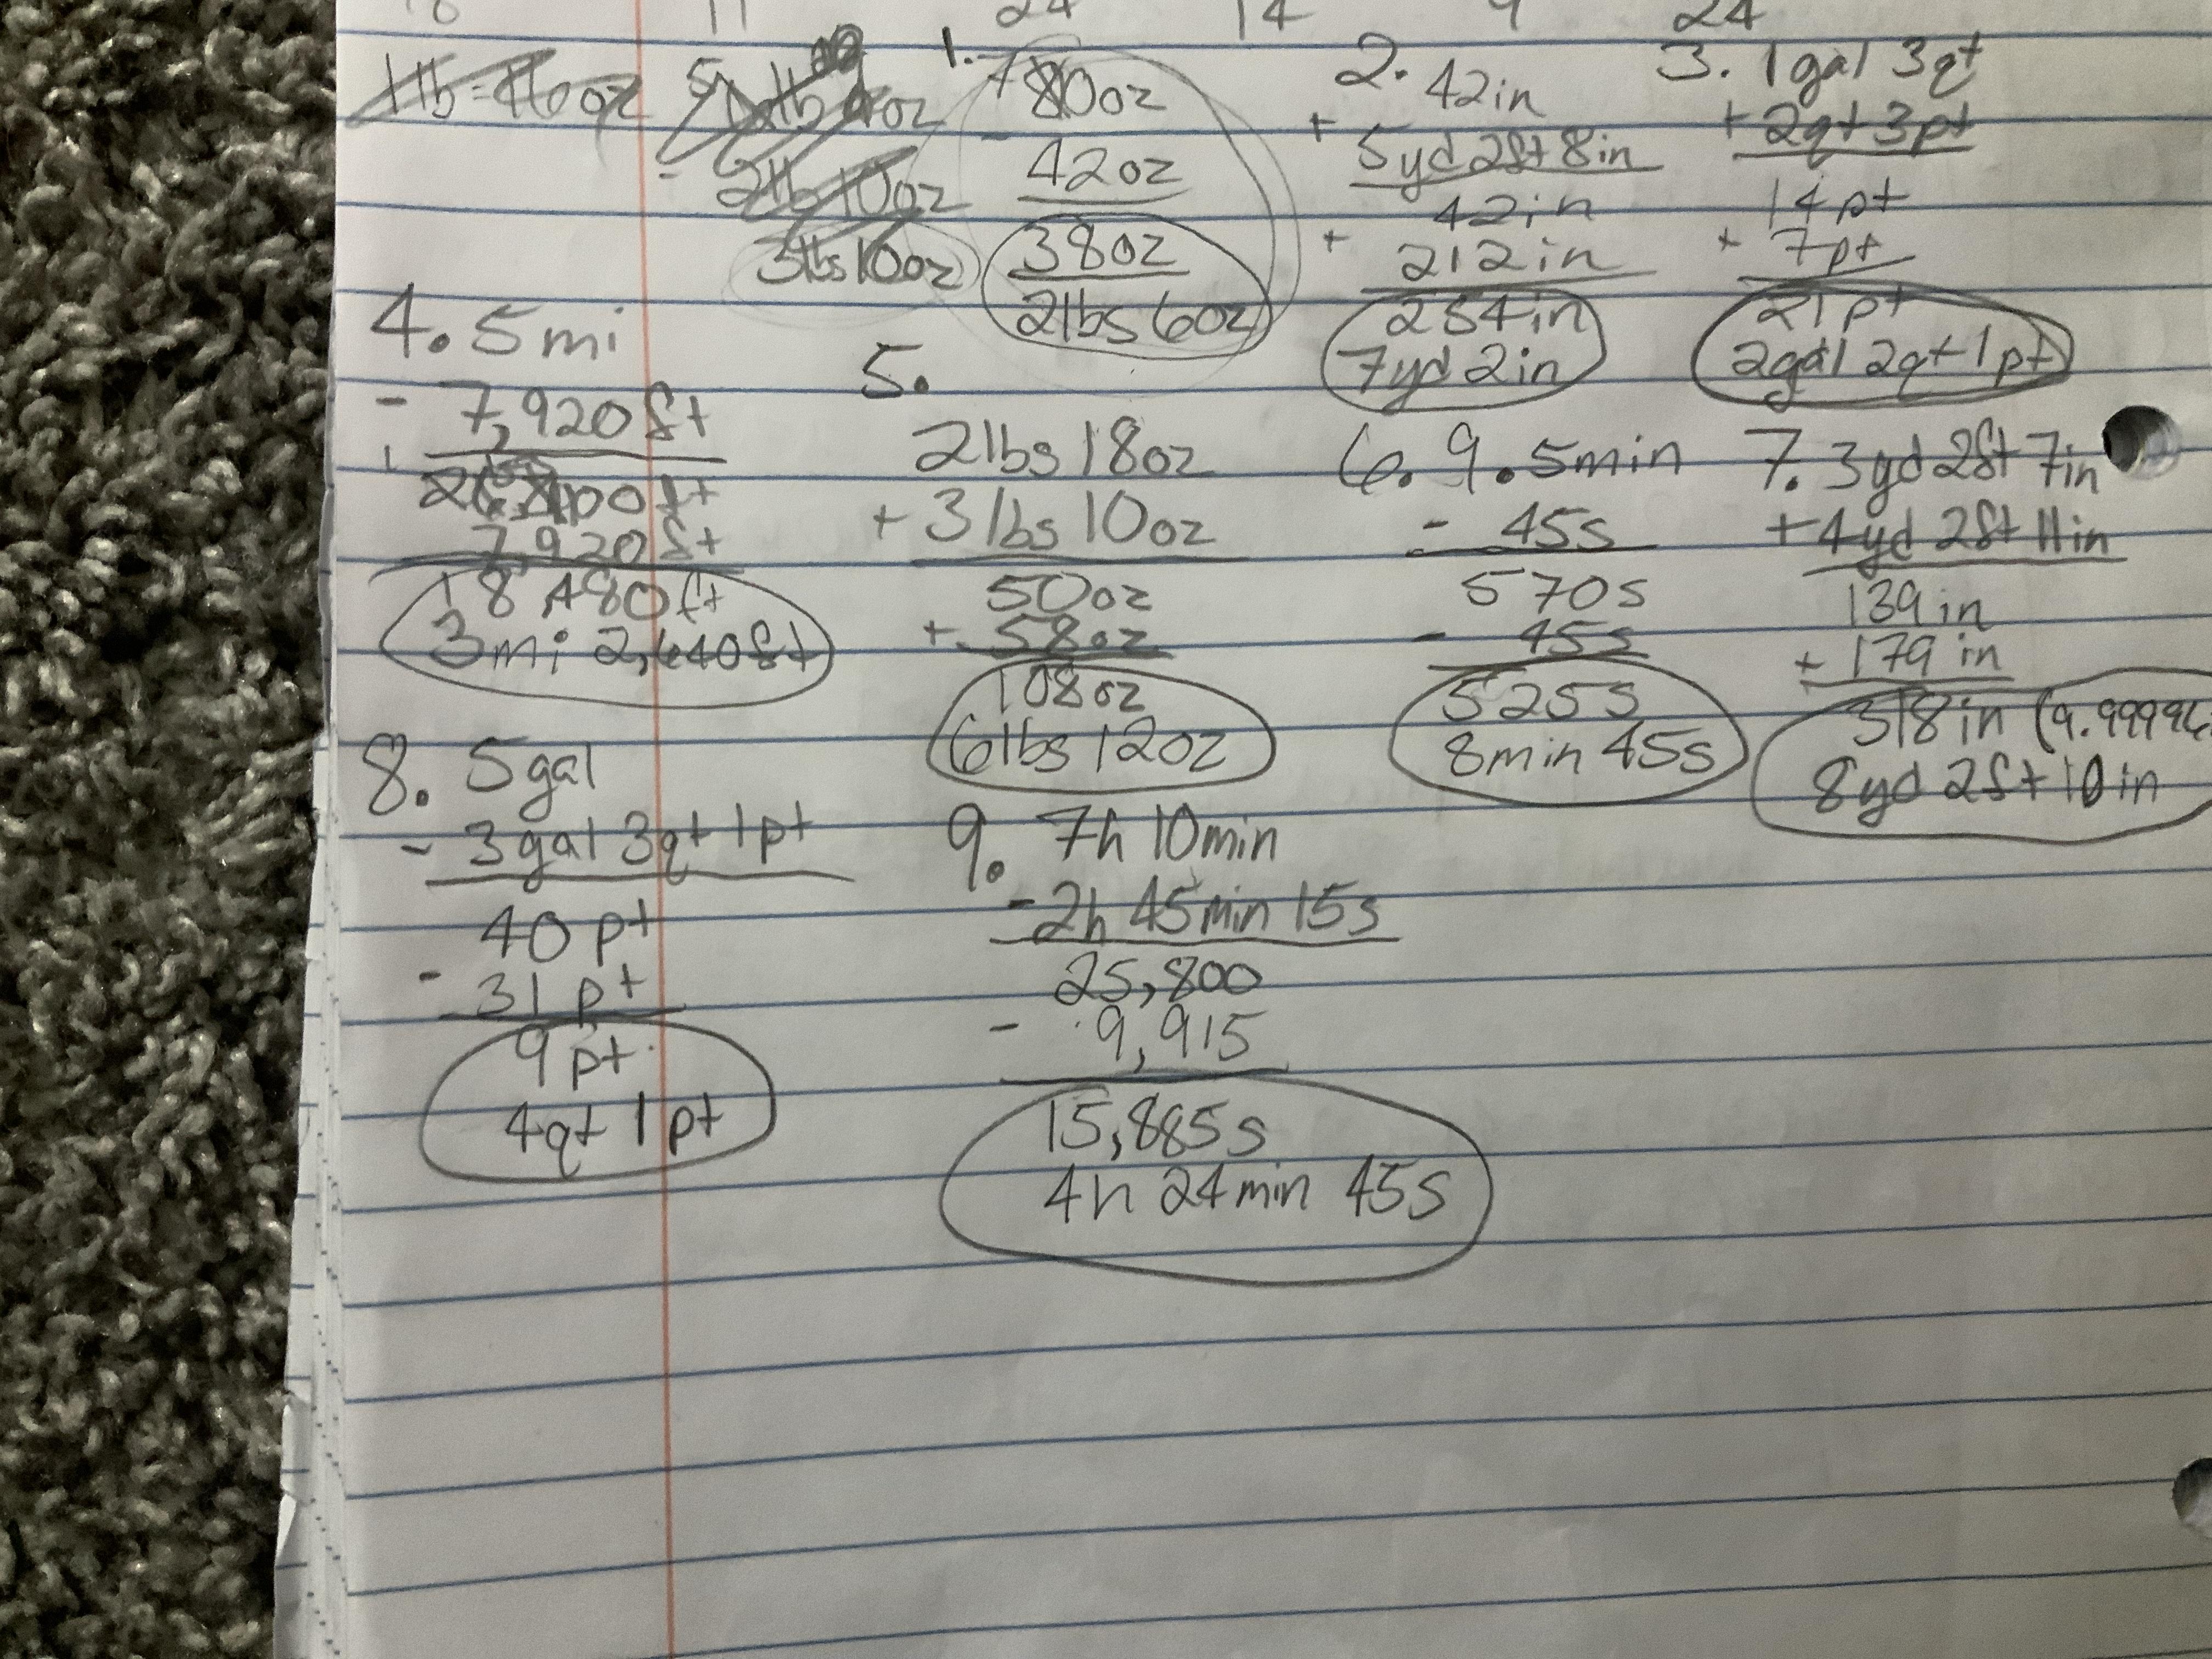 11 24 14 9 24
1lb=16oz
2lb 10oz
3lbs 10oz
1. 80oz
- 42oz
38oz
2lbs 6oz
2. 42in
+ 5yd 2ft 8in
42in
+ 212in
254in
7yd 2in
3. 1gal 3qt
+ 2qt 3pt
14pt
+ 7pt
21pt
2gal 2qt 1pt
4. 5mi
- 7,920ft
7,920ft
18,480ft
3mi 2,640ft
5.
2lbs 18oz
+ 3lbs 10oz
50oz
+ 58oz
108oz
6lbs 12oz
6. 9.5min
- 45s
570s
- 45s
525s
8min 45s
7. 3yd 2ft 7in
+ 4yd 2ft 11in
139in
+ 179in
318in (9.9999
8yd 2ft 10in
8. 5gal
- 3gal 3qt 1pt
40pt
- 31pt
9pt
4qt 1pt
9. 7h 10min
- 2h 45min 15s
25,800
- 9,915
15,885s
4h 24min 45s